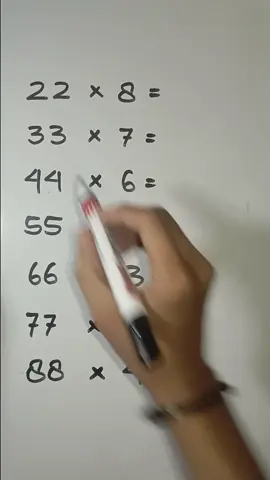 22 × 8 =
33 × 7 =
44 × 6 =
55
66 3
77 ×
88 ×